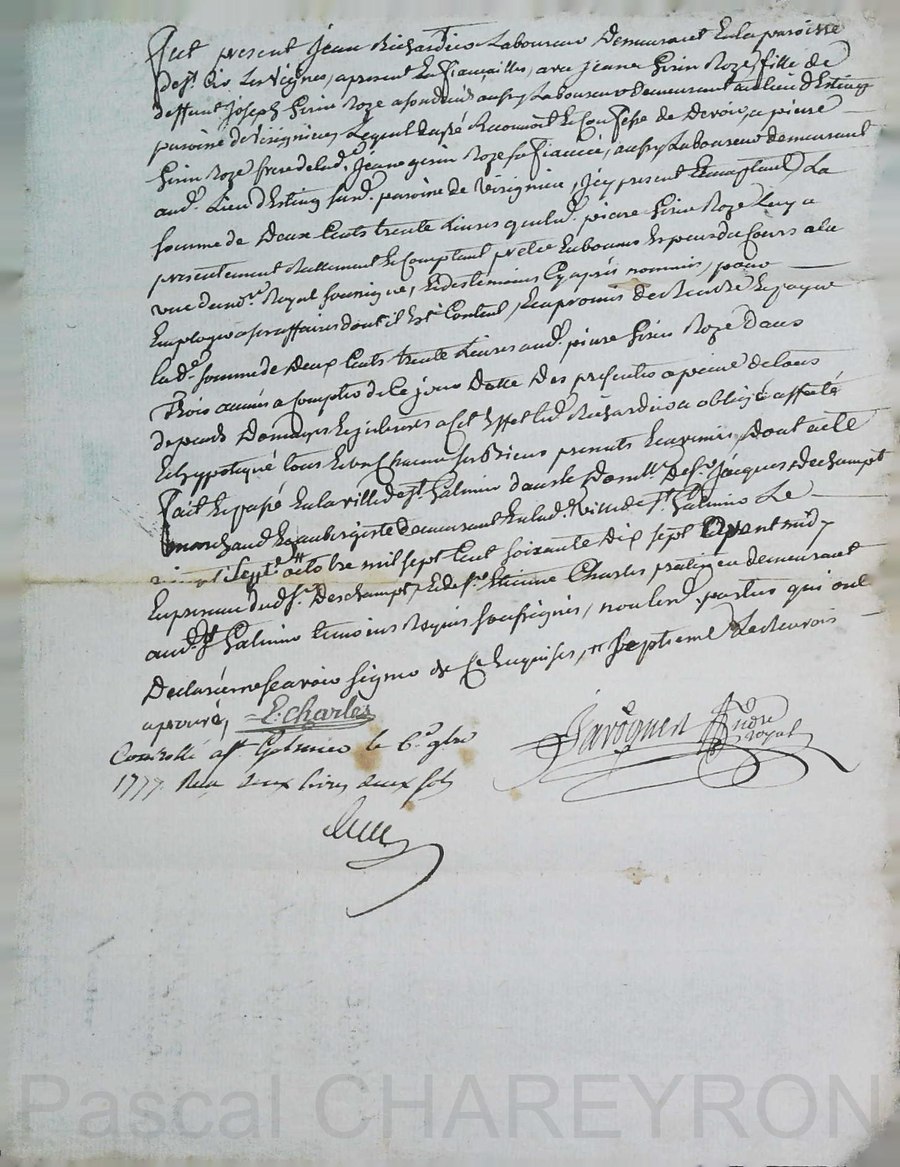 fut présent Jean Richard Laboureur Demeurant En la paroisse
de st. Les Vignes, a present En fiançailles, avec jeane Girin Roze fille de
deffunt Joseph Girin Roze Laboureur demeurant au lieu d'Estieug
paroisse de Virignieu, Lequel de gré Reconnoît Et Confesse De Devoir, a pierre
Girin Roze frere de lad. jeane girin Roze sa fiancée, aussy Laboureur demeurant
aud. Lieu d'Estieug susd. paroisse de Virignieu, Icy present Et acceptant, La
somme de Deux Cents trente Livres que led. pierre Girin Roze Luy a
presentement Reellement Et Comptant pretée En bonnes Espèces du Cours a la
vue dud. Nre. Royal soussigné, Et des temoins Cy après nommés, pour
Employer a ses affaires dont il Est Content, Et a promis de Rendre Et payer
lad. somme de Deux Cents trente Livres aud. pierre Girin Roze Dans
trois années a compter de Ce jour Datte Des présentes a peine de tous
depends Domages Et interests a Cet Effet led. Richard a obligé affecté
Et hypotequé tous Et un Chacun ses Biens presents Et avenir, Dont acte
fait Et passé En la ville de st. Galmier dans le Domlle. De Sr. Jacques Dechampt
marchand Et aubergiste demeurant En lad. Ville de st. Galmier Le
vingt Sept. octobre mil sept Cent soixante Dix sept Avant midy
En presence dud. Sr. Deschampt, Et de Sr. Etienne Charles praticien demeurant
aud. St Galmier temoins Requis soussignés, non led. parties qui ont
Declaré ne scavoir signer de Ce Enquises, " septieme Le Renvois
aprouvé, E. Charles
Javogues Nre Royal
Controllé a St. Galmier le 6e. 9bre
1777. Reçu deux livres deux sols